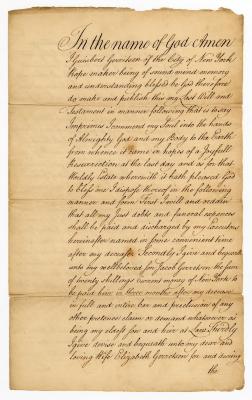 In the name of God Amen
I Guisbert Gerritsen of the City of New York
Rope maker being of sound mind memory
and understanding blessed be God therefore
do make and publish this my Last Will and
Testament in manner following that is to say
Imprimis I commend my Soul into the hands
of Almighty God and my Body to the Earth
from whence it came in hopes of a Joyfull
Resurrection at the last day and as for that
Worldly Estate wherewith it hath pleased God
to bless me I dispose thereof in the following
manner and form First I will and
that all my Just debts and funeral expences
shall be paid and discharged by my Executors
hereinafter named in some convenient time
after my decease Secondly I give and bequeath
unto my welbeloved Son Jacob Gerritsen the sum
of twenty shillings current money of New York to
be paid him in three months after my decease
in full and entire bar and preclusion of any
other pretence claim or demand whatsoever as
being my eldest son and heir at Law Thirdly
I give devise and bequeath unto my dear and
loving Wife Elizabeth Gerritsen for and during
the